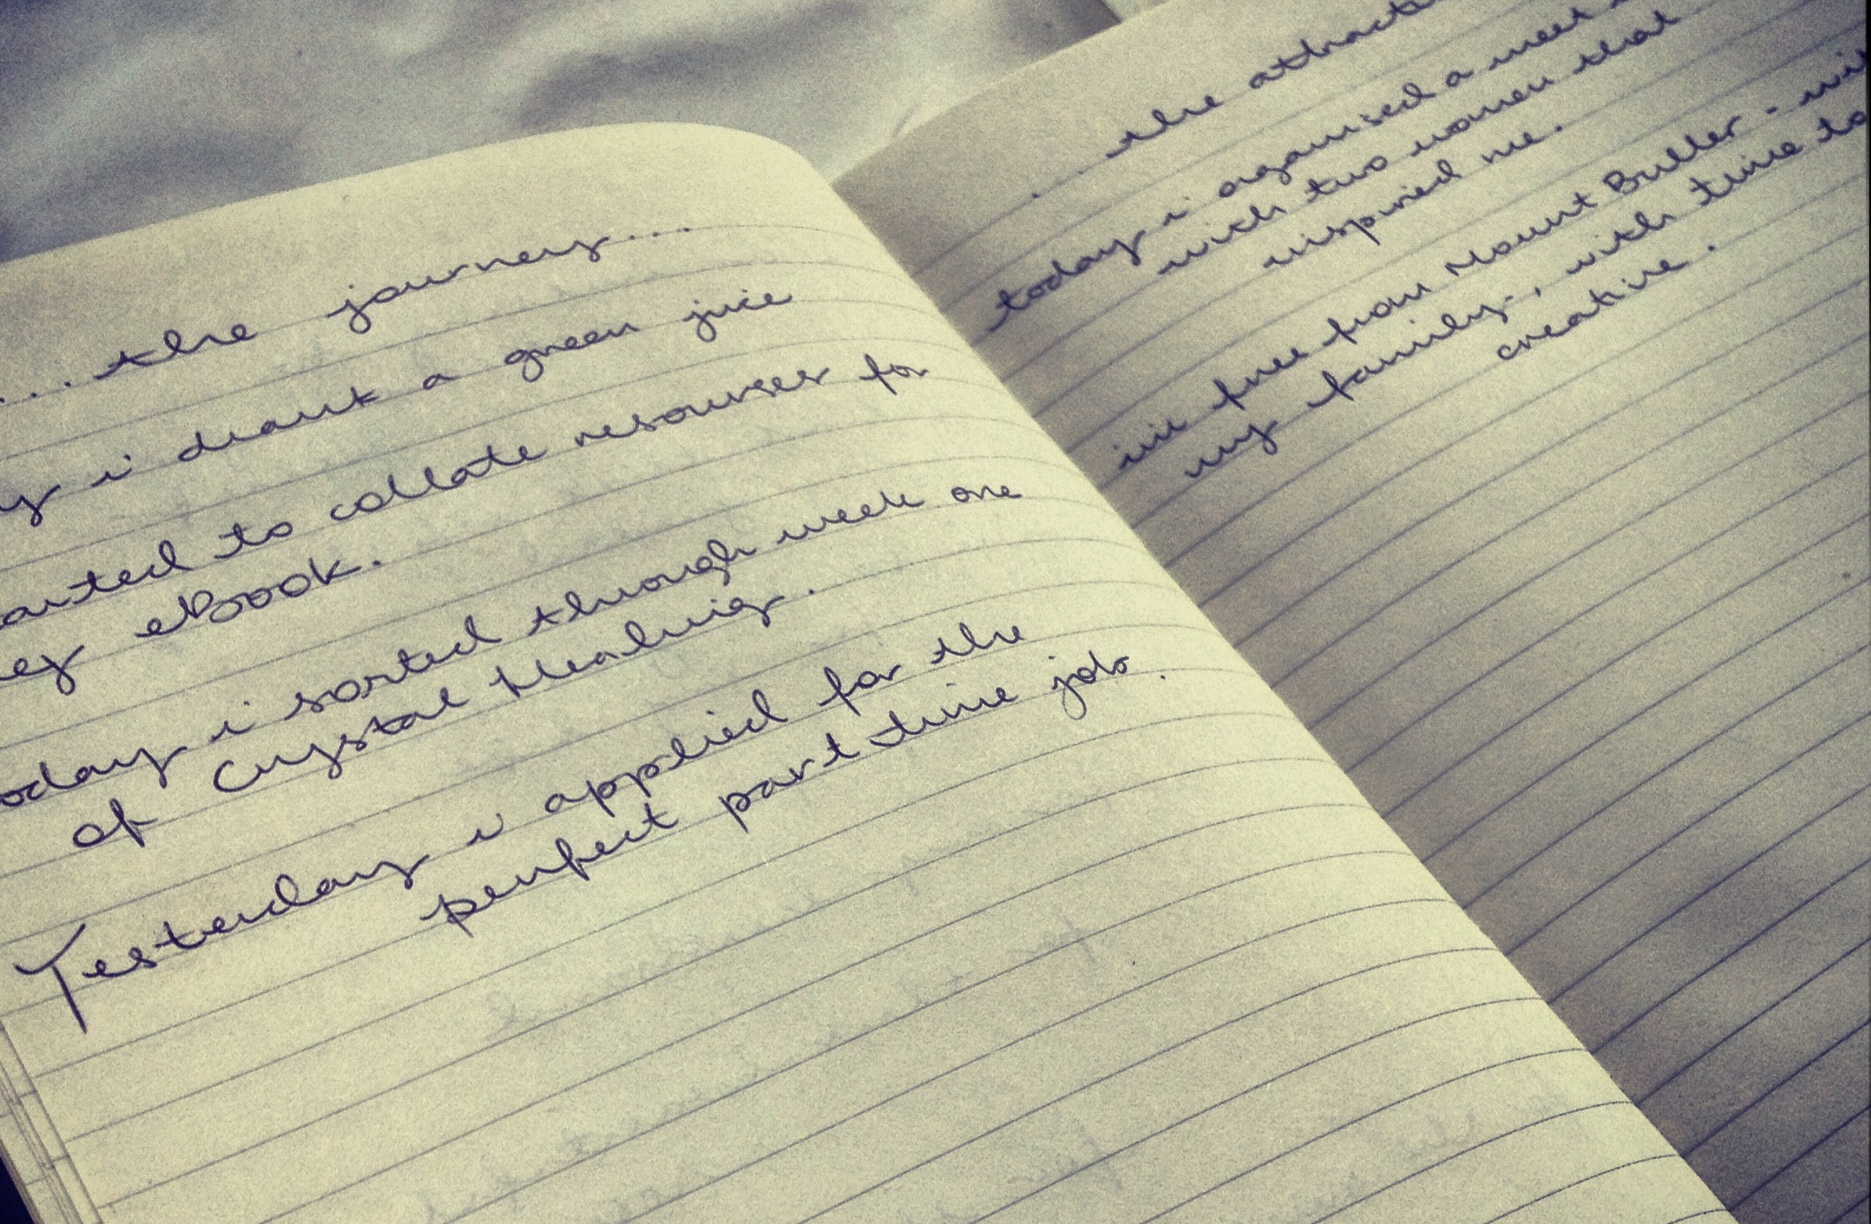 ...the journey...
y i drank a green juice
arted to collate resourses for
ey eBook.
oday i sorted through week one
of Crystal Healing.
Yesterday i applied for the
perfect part time job.
...the attract
today i organised a meet
with two women that
inspired me.
free from Mount Buller -
my family, with time to
creative.